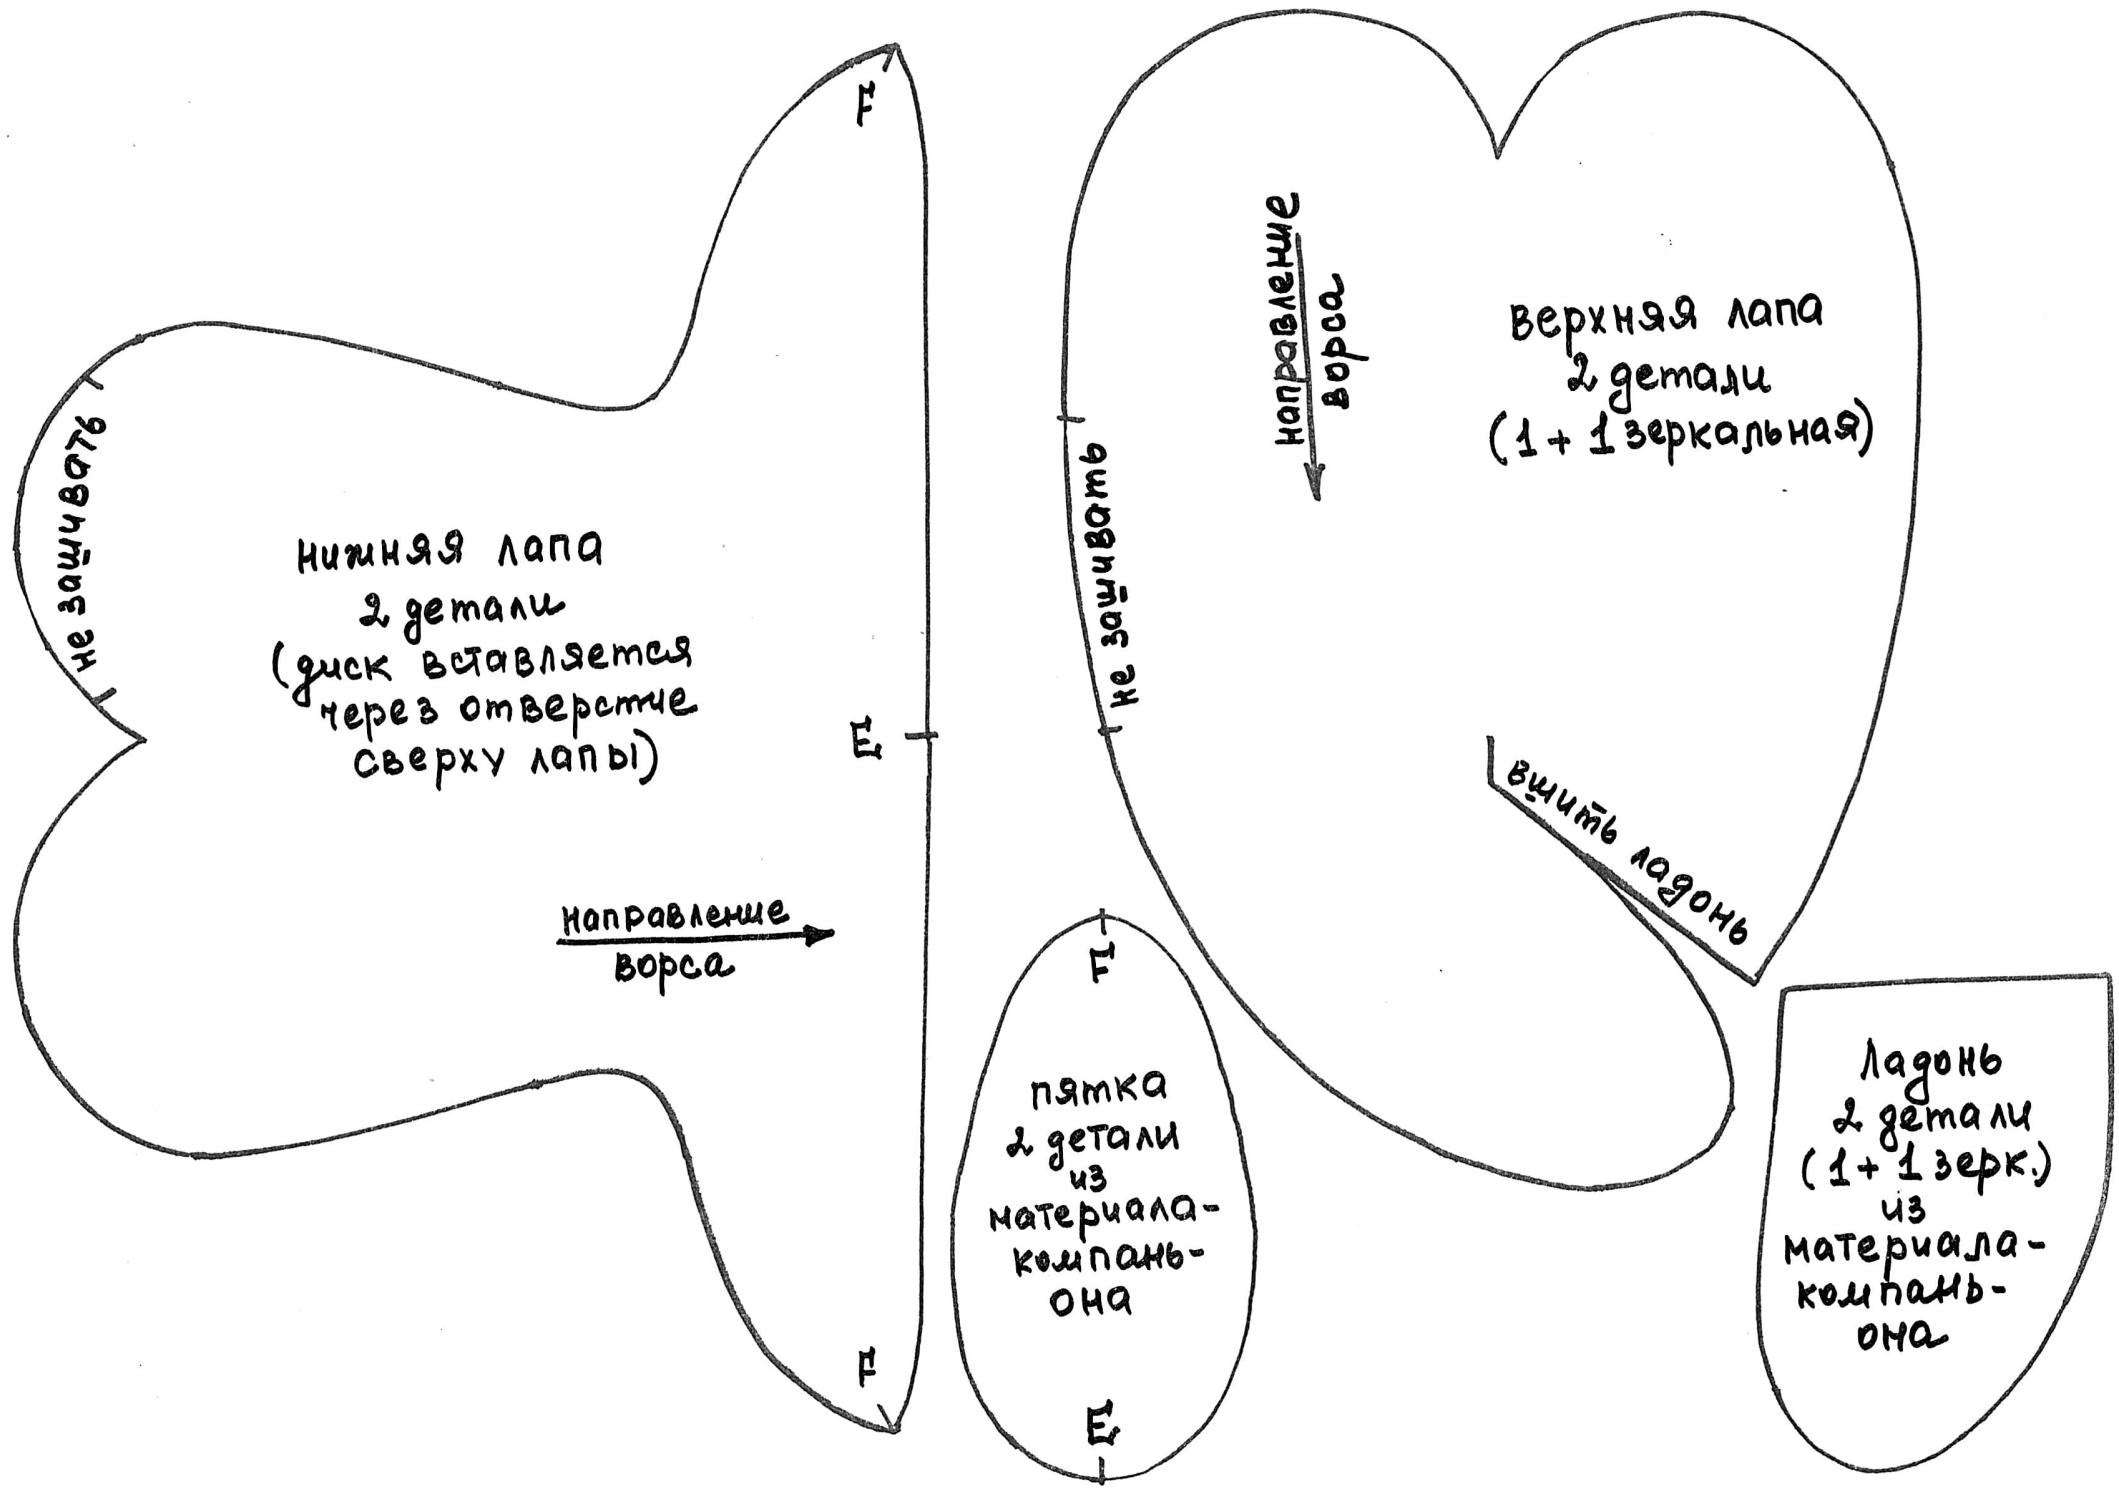 F
не зашивать
нижняя лапа
2 детали
(диск вставляется
через отверстие
сверху лапы)
E
направление
ворса
F
направление
ворса
верхняя лапа
2 детали
(1 + 1 зеркальная)
не зашивать
вшить ладонь
F
пятка
2 детали
из
материала-
компань-
она
E
Ладонь
2 детали
(1 + 1 зерк.)
из
материала-
компань-
она